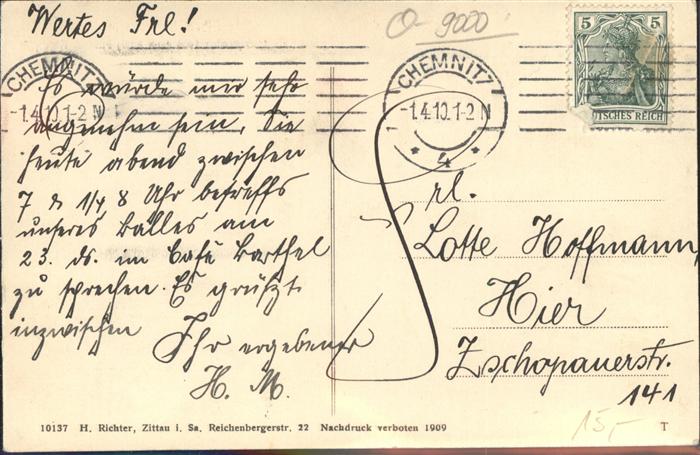 Wertes Frl!
O- 9000
5 5
DEUTSCHES REICH
CHEMNITZ
-1.4.10.1-2 N
CHEMNITZ
-1.4.10.1-2 N
* 4 *
Es würde mir sehr
angenehm sein, Sie
heute abend zwischen
7 & 1/4 8 Uhr betreffs
unseres Balles am
23. ds. im Café Barthel
zu sprechen. Es grüßt
inzwischen
Ihr ergebener
H. M.
Frl.
Lotte Hoffmann,
Hier
Zschopauerstr.
141
15,-
10137 H. Richter, Zittau i. Sa. Reichenbergerstr. 22 Nachdruck verboten 1909
T